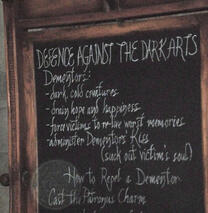 DEFENCE AGAINST THE DARK ARTS
Dementors:
-dark, cold creatures
-drain hope and happiness
-force victims to re-live worst memories
-administer Dementor's Kiss
(suck out victim's soul)
How to Repel a Dementor
Cast the Patronus Charm